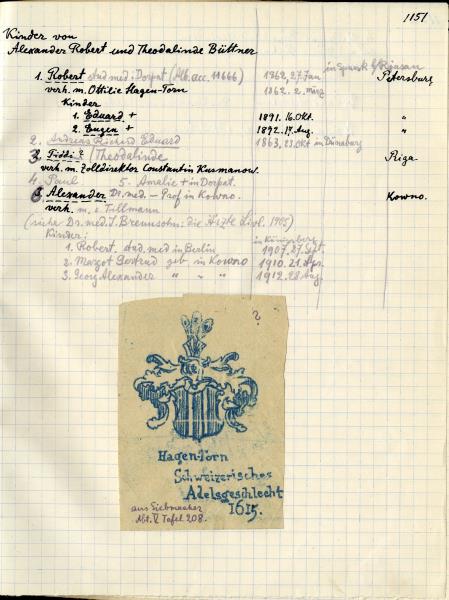 1151
Kinder von
Alexander Robert und Theodalinde Büttner
1. Robert stud. med. Dorpat (Alb. acc. 11666) in b/Rjasan 1862, 27. Jan Petersburg
verh. m. Ottilie Hagen-Torn 1862. 2. März
Kinder
1. Eduard + 1891. 16. Okt. "
2. Eugen + 1892. 17. Aug. "
2. Andreas Richard Eduard 1863, 23. Okt in Dünaburg
3. Fiddi? (Theodalinde Riga
verh. m. Zolldirektor Constantin Kusmanow.
4. Paul 5. Amalie + in Dorpat.
6. Alexander Dr. med. – Prof in Kowno. Kowno.
verh. m. Tillmann
(siehe Dr. med. I. Brennsohn: die Ärzte Livl. 1905)
Kinder: in Königsberg
1. Robert. stud. med in Berlin 1907. 27. Sept.
2. Margot Gertrud geb. in Kowno 1910. 21. Apr.
3. Georg Alexander " " " 1912. 28. Aug.
?
Hagen-Torn
Schweizerisches
Adelsgeschlecht
1615.
aus Siebmacher
Abt. V Tafel 208.